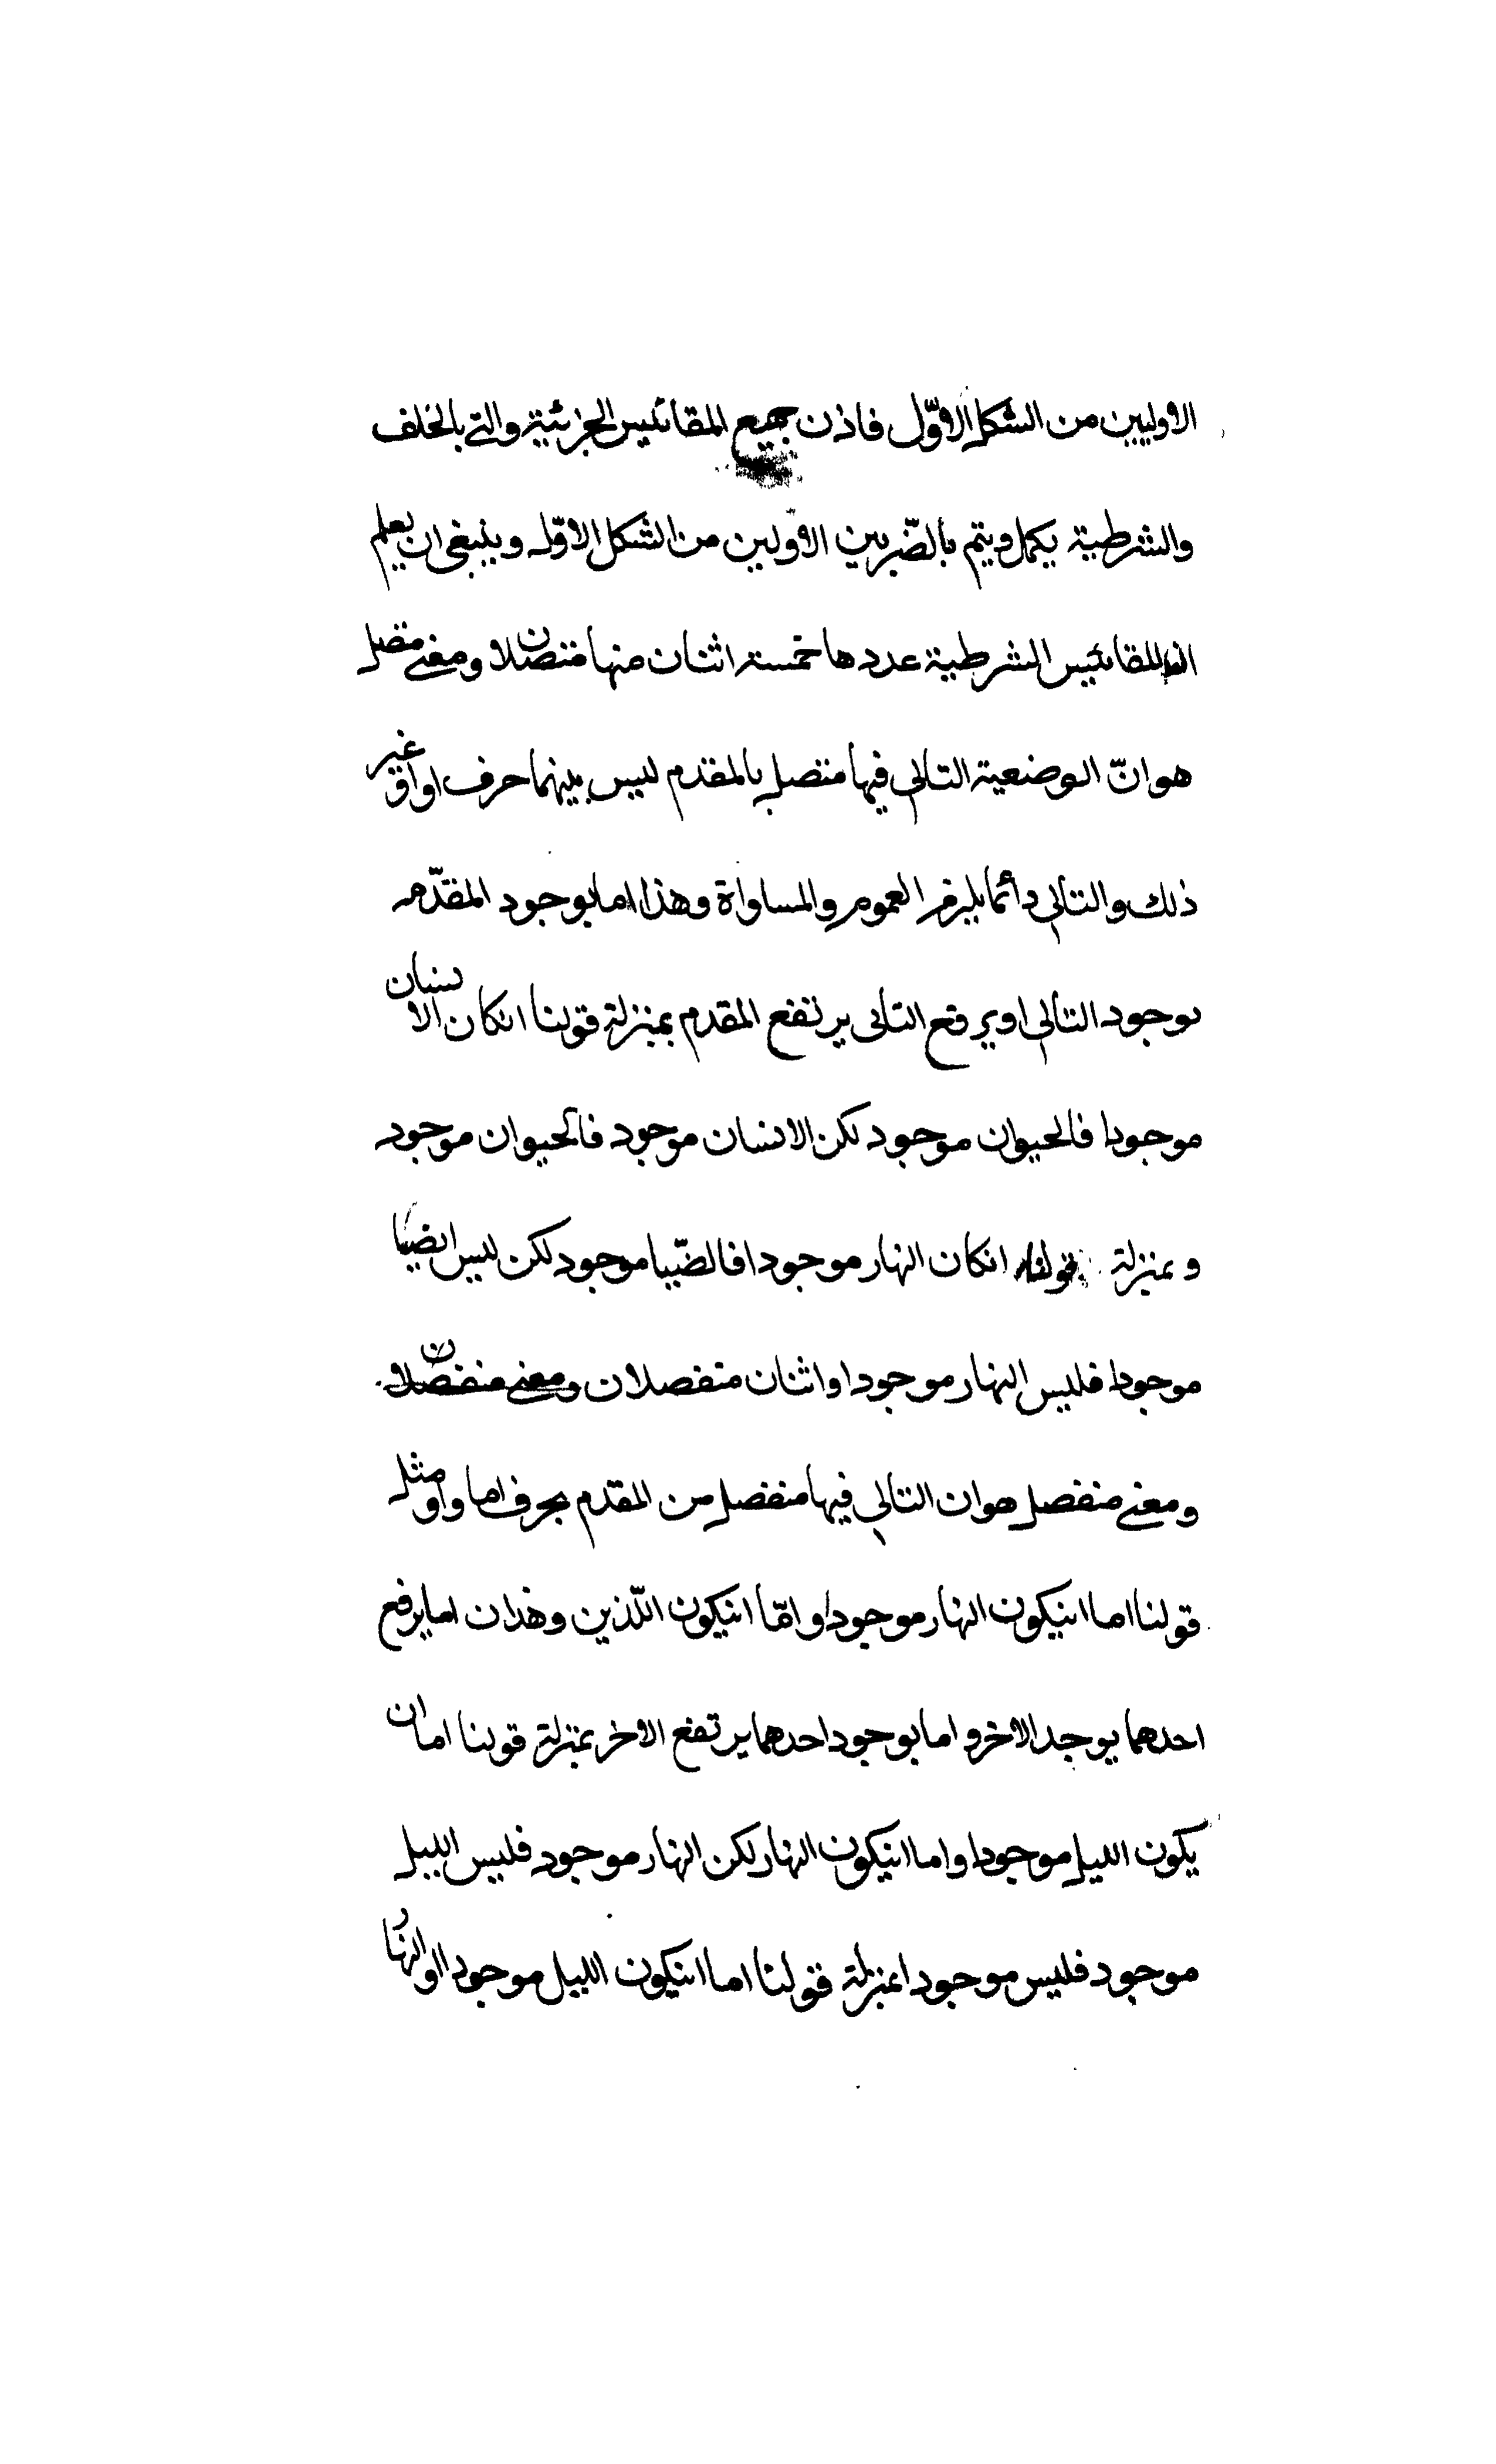 الاوليين من الشكل الاوّل فاذن جميع المقائيس الجزئية والتي بالخلف
والشرطية يكمل ويتم بالضّربين الاولين من الشكل الاوّل وينبغي ان يعلم
المقائيس الشرطية عددها خمسة اثنان منها متصلان ومعنى متصل
هو انّ الوضعية التالي فيها متصل بالمقدم ليس بينهما حرف او اق غير
ذلك والتالي دائما يلزم العموم والمساواة وهذا اما بوجود المقدّم
بوجود التالي او يرفع التالى يرتفع المقدم بمنزلة قولنا انكان الانسان
موجودا فالحيوان موجود لكن الانسان موجود فالحيوان موجود
وبمنزلة قولنا انكان النهار موجودا فالضّيا موجود لكن ليس الضيا
موجودا فليس النهار موجودا واثنان منفصلان ومعنى منفصلان
ومعنى منفصل هو ان التالي فيها منفصل من المقدم بحرف اما واو مثل
قولنا اما انيكون النهار موجودا وامّا انيكون اللّذين وهذان اما يرفع
احدهما يوجد الاخر و اما بوجود احدهما يرتفع الاخر بمنزلة قولنا اما ان
يكون الليل موجودا واما انيكون النهار لكن النهار موجود فليس الليل
موجود فليس موجودا بمنزلة قولنا اما انيكون الليل موجودا او النهار